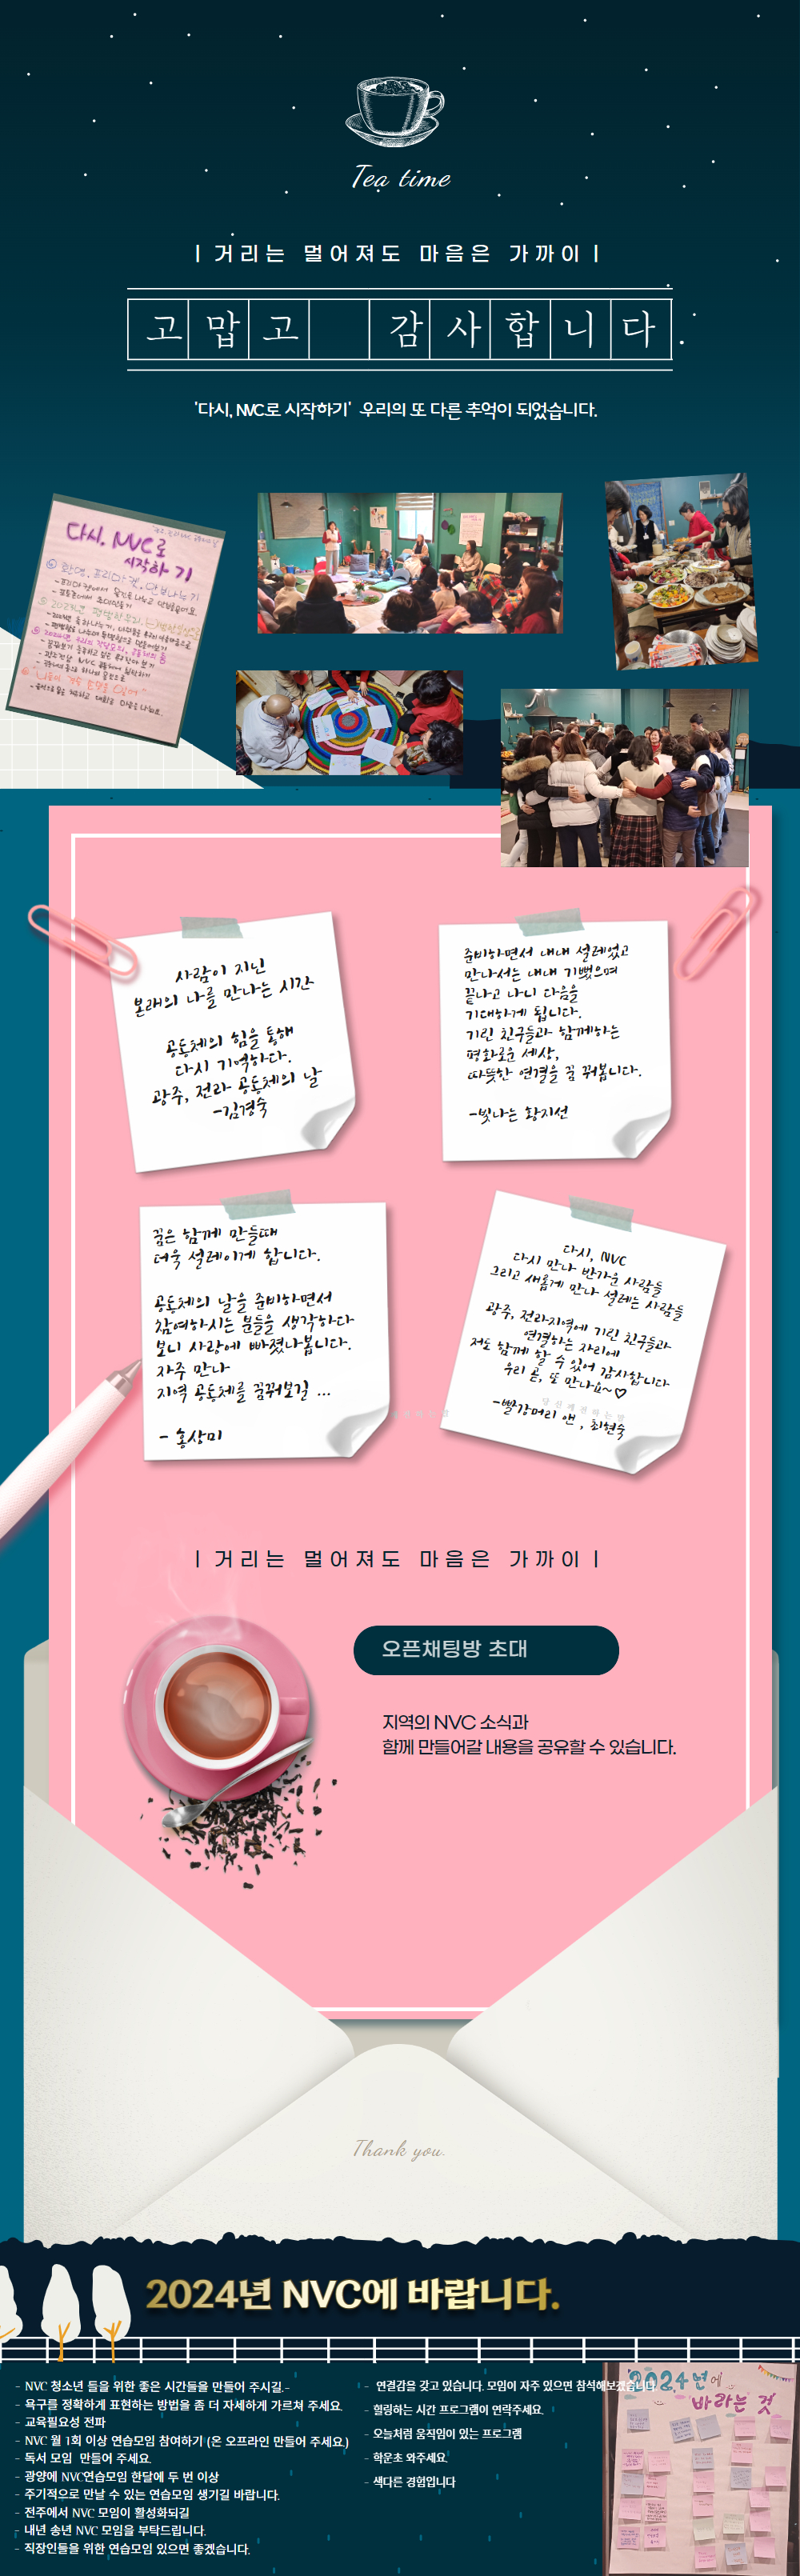 Tea time
| 거리는 멀어져도 마음은 가까이 |
고맙고 감사합니다.
'다시, NVC로 시작하기' 우리의 또 다른 추억이 되었습니다.
다시, NVC로
시작하기
사람이 지닌
본래의 나를 만나는 시간
공동체의 힘을 통해
다시 기억하다.
광주, 전라 공동체의 날
-김경숙
준비하면서 내내 설레었고
만나서는 내내 기뻤으며
끝나고 나니 다음을
기대하게 됩니다.
기린 친구들과 함께하는
평화로운 세상,
따뜻한 연결을 꿈 꿔봅니다.
-빛나는 황지선
꿈은 함께 만들때
더욱 설레이게 합니다.
공동체의 날을 준비하면서
참여하시는 분들을 생각하다
보니 사랑에 빠졌나봅니다.
자주 만나
지역 공동체를 꿈꿔보길 ...
- 홍상미
다시, NVC
다시 만나 반가운 사람들
그리고 새롭게 만나 설레는 사람들
광주, 전라지역에 기린 친구들과
연결하는 자리에
저도 함께 할 수 있어 감사합니다
우리 곧, 또 만나요~♡
-빨강머리 앤 , 최현숙
| 거리는 멀어져도 마음은 가까이 |
오픈채팅방 초대
지역의 NVC 소식과
함께 만들어갈 내용을 공유할 수 있습니다.
Thank you.
2024년 NVC에 바랍니다.
- NVC 청소년 들을 위한 좋은 시간들을 만들어 주시길.-
- 욕구를 정확하게 표현하는 방법을 좀 더 자세하게 가르쳐 주세요.
- 교육필요성 전파
- NVC 월 1회 이상 연습모임 참여하기 (온 오프라인 만들어 주세요.)
- 독서 모임 만들어 주세요.
- 광양에 NVC연습모임 한달에 두 번 이상
- 주기적으로 만날 수 있는 연습모임 생기길 바랍니다.
- 전주에서 NVC 모임이 활성화되길
- 내년 송년 NVC 모임을 부탁드립니다.
- 직장인들을 위한 연습모임 있으면 좋겠습니다.
- 연결감을 갖고 있습니다. 모임이 자주 있으면 참석해보겠습니다.
- 힐링하는 시간 프로그램이 연락주세요.
- 오늘처럼 움직임이 있는 프로그램
- 학운초 와주세요.
- 색다른 경험입니다
2024년에
바라는 것